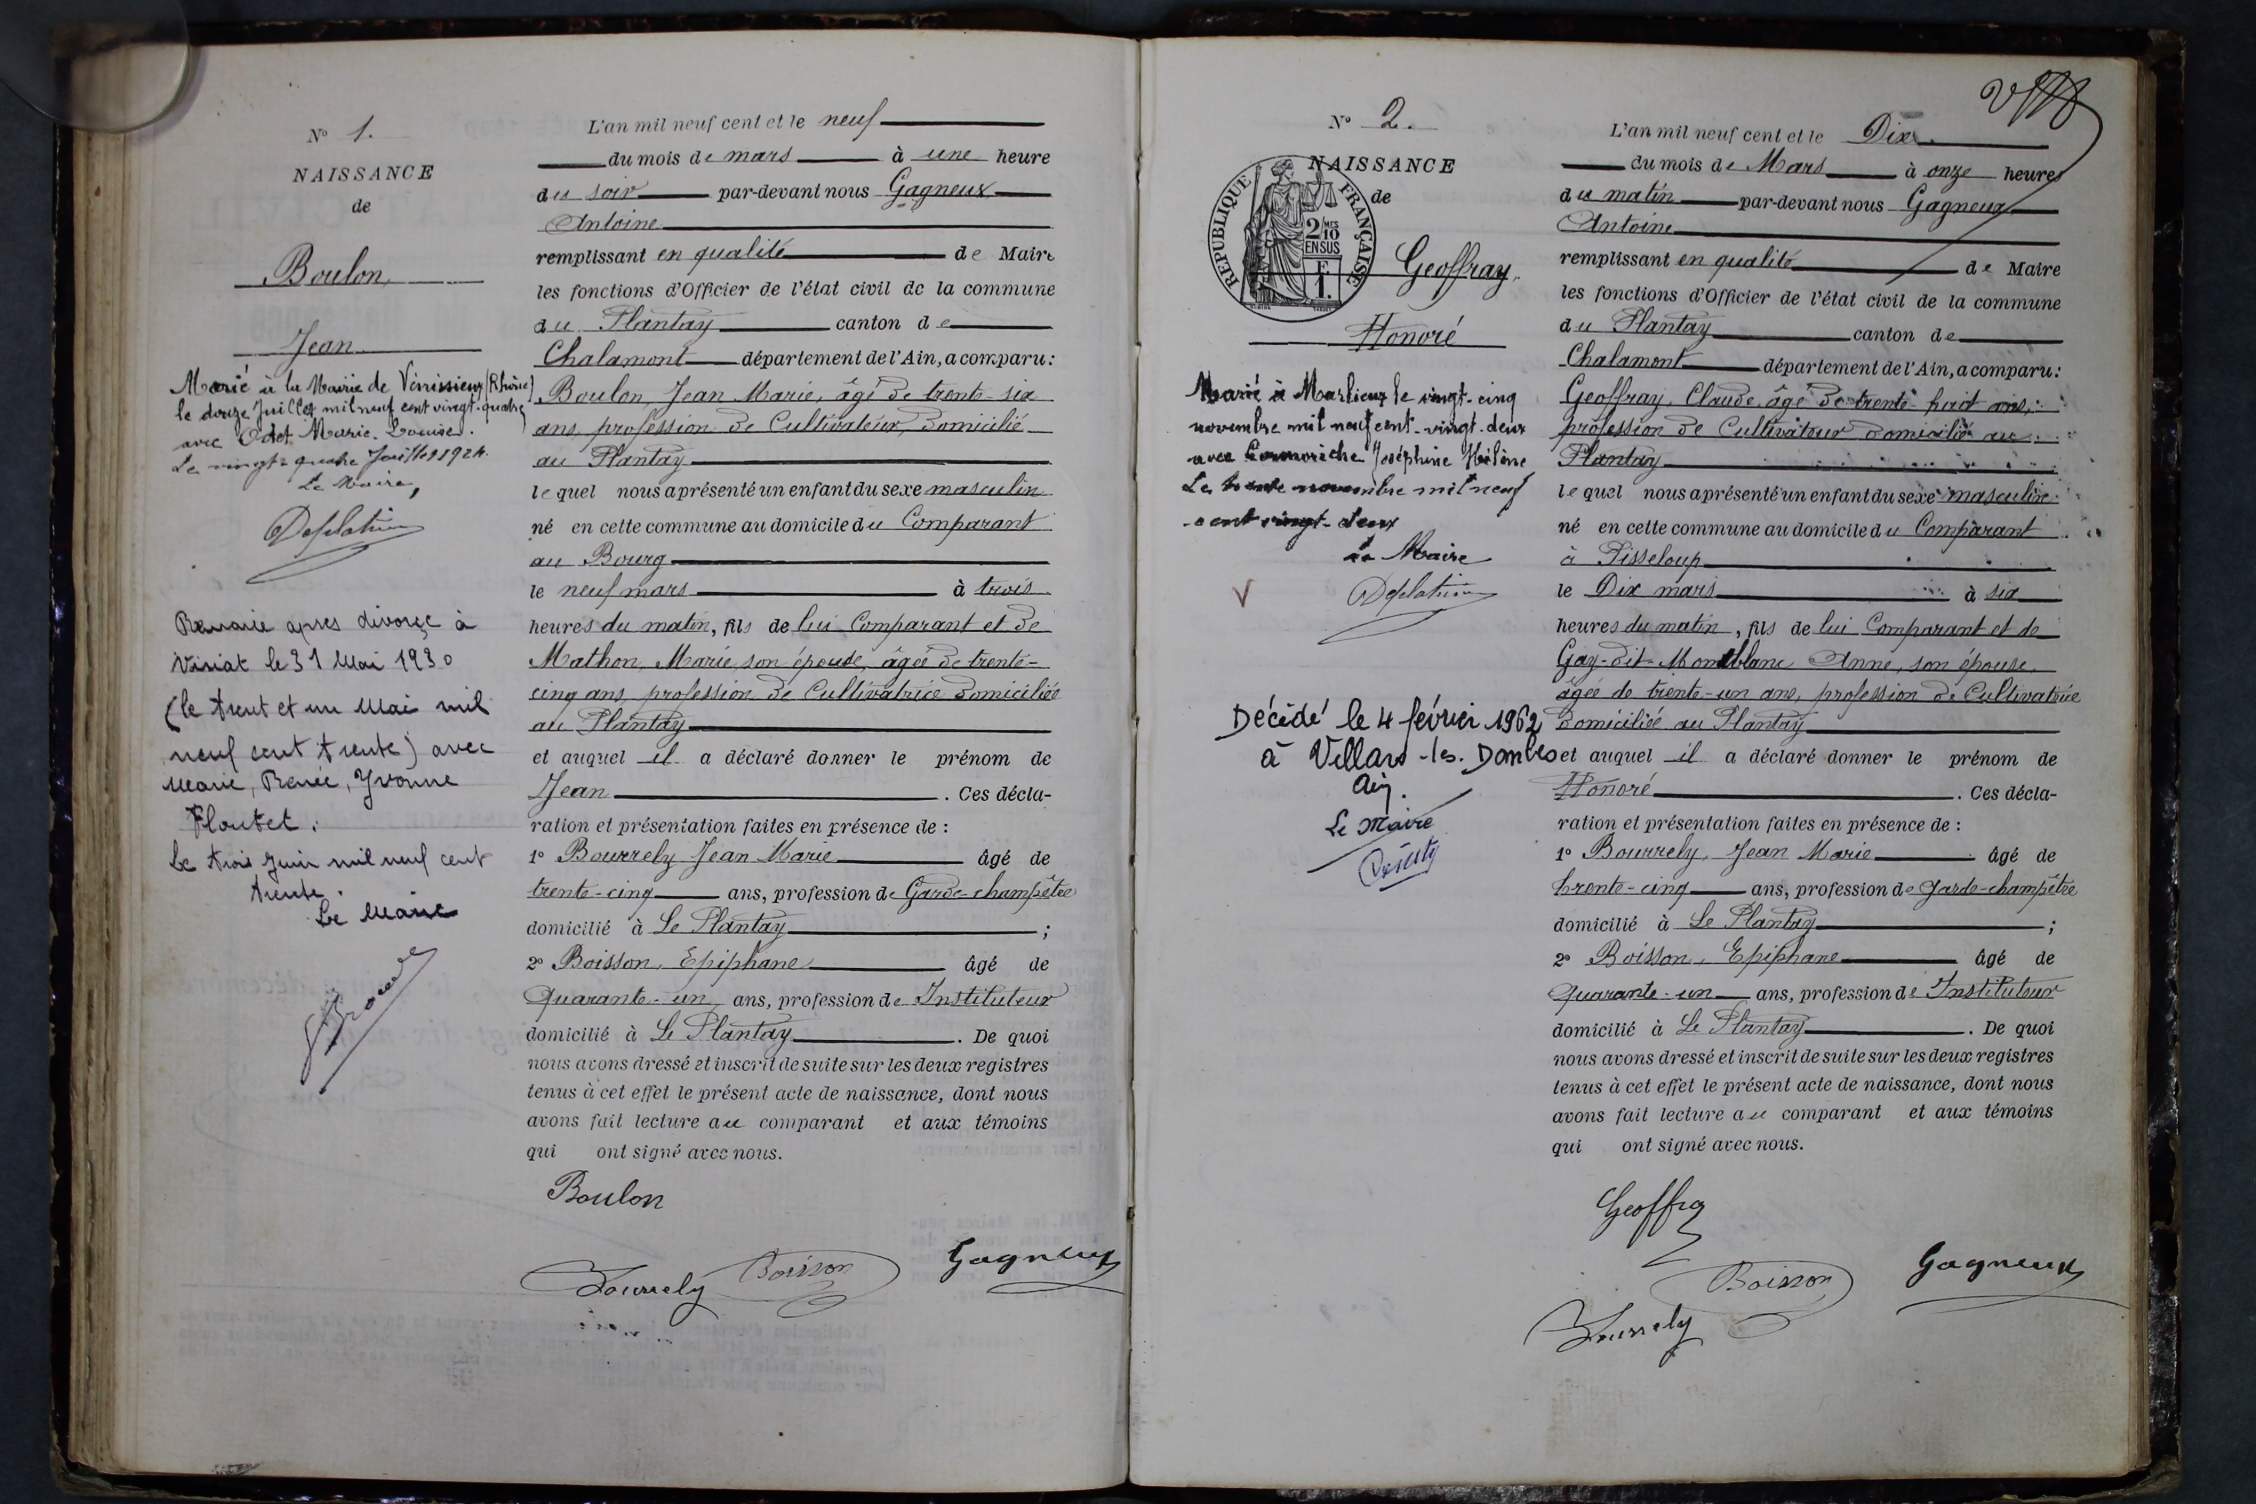 N° 1.
NAISSANCE
de
Boulon,
Jean
Marié à la Mairie de Vénissieux (Rhône)
le douze Juillet mil neuf cent vingt-quatre
avec Odet Marie-Louise.
Le vingt-quatre Juillet 1924.
Le Maire,
Remarié apres divorce à
Viriat le 31 Mai 1930
(le trent et un Mai mil
neuf cent trente) avec
Marie, Renée, Yvonne
Le trois juin mil neuf cent
trente.
Le Maire
L'an mil neuf cent et le neuf
du mois de mars à une heure
du soir par-devant nous Gagneux
Antoine
remplissant en qualité de Maire
les fonctions d'Officier de l'état civil de la commune
du Plantay canton de
Chalamont département de l'Ain, a comparu:
Boulon, Jean Marie, âgé de trente-six
ans, profession de Cultivateur, domicilié
au Plantay
lequel nous a présenté un enfant du sexe masculin
né en cette commune au domicile du Comparant
au Bourg
le neuf mars à trois
heures du matin, fils de lui Comparant et de
Mathon, Marie, son épouse, âgée de trente-
cinq ans, profession de Cultivatrice domiciliée
au Plantay
et auquel il a déclaré donner le prénom de
Jean . Ces décla-
ration et présentation faites en présence de :
1° Bourrely Jean Marie âgé de
trente-cinq ans, profession de Garde-champêtre
domicilié à Le Plantay ;
2° Boisson, Epiphane âgé de
Quarante-un ans, profession de Instituteur
domicilié à Le Plantay . De quoi
nous avons dressé et inscrit de suite sur les deux registres
tenus à cet effet le présent acte de naissance, dont nous
avons fait lecture au comparant et aux témoins
qui ont signé avec nous.
Boulon
Bourrely Boisson Gagneux
N° 2.
NAISSANCE
de
REPUBLIQUE FRANÇAISE
2/10 MES
EN SUS
F.
1.
Geoffray.
Honoré
Marié à Marlieux le vingt-cinq
novembre mil neuf cent-vingt-deux
avec Joséphine Hélène
Le trente novembre mil neuf
cent vingt-deux
Le Maire
V
Décédé le 4 février 1962
à Villars-les-Dombes
Ain.
Le Maire
L'an mil neuf cent et le Dix
du mois de Mars à onze heures
du matin par-devant nous Gagneux
Antoine
remplissant en qualité de Maire
les fonctions d'Officier de l'état civil de la commune
du Plantay canton de
Chalamont département de l'Ain, a comparu:
Geoffray, Claude, âgé de trente-huit ans,
profession de Cultivateur domicilié au
Plantay
lequel nous a présenté un enfant du sexe masculin
né en cette commune au domicile du Comparant
à Pisseloup
le Dix mars à six
heures du matin, fils de lui Comparant et de
Gay-dit-Montblanc Anne, son épouse
âgée de trente-un ans, profession de Cultivatrice
domiciliée au Plantay
et auquel il a déclaré donner le prénom de
Honoré . Ces décla-
ration et présentation faites en présence de :
1° Bourrely, Jean Marie âgé de
trente-cinq ans, profession de garde-champêtre
domicilié à Le Plantay ;
2° Boisson, Epiphane âgé de
Quarante-un ans, profession de Instituteur
domicilié à Le Plantay . De quoi
nous avons dressé et inscrit de suite sur les deux registres
tenus à cet effet le présent acte de naissance, dont nous
avons fait lecture au comparant et aux témoins
qui ont signé avec nous.
Geoffray
Boisson Gagneux
Bourrely